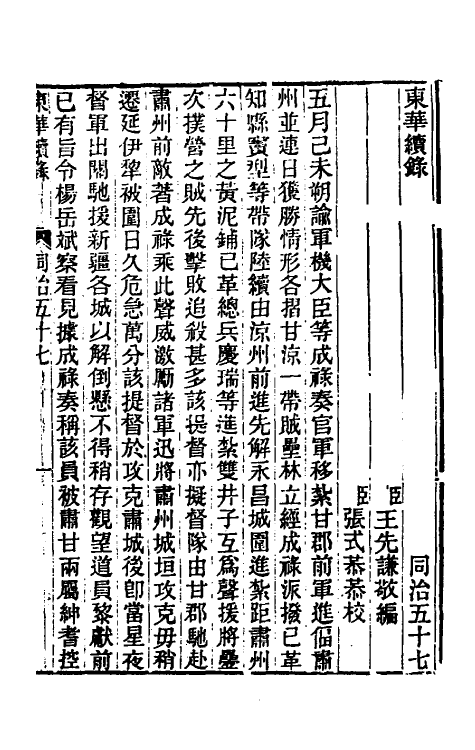 東華續錄
同治五十七
臣王先謙敬編
臣張式恭恭校
五月己未朔諭軍機大臣等成祿奏官軍移紮甘郡前軍進偪肅
州並連日獲勝情形各摺甘涼一帶賊壘林立經成祿派撥已革
知縣竇型等帶隊陸續由涼州前進先解永昌城圍進紮距肅州
六十里之黃泥鋪已革總兵慶瑞等進紮雙井子互為聲援將壘
次撲營之賊先後擊敗追殺甚多該提督亦擬督隊由甘郡馳赴
肅州前敵著成祿乘此聲威激勵諸軍迅將肅州城垣攻克毋稍
遷延伊犂被圍日久危急萬分該提督於攻克肅城後即當星夜
督軍出關馳援新疆各城以解倒懸不得稍存觀望道員黎獻前
已有旨令楊岳斌察看見據成祿奏稱該員被肅甘兩屬紳耆控
東華續錄
同治五十七
一